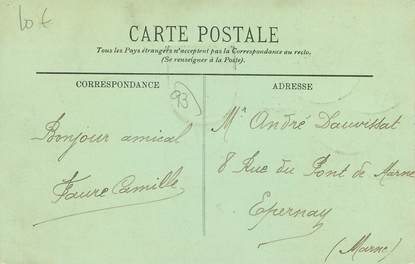 60 €
CARTE POSTALE
Tous les Pays étrangers n'acceptent pas la Correspondance au recto.
(Se renseigner à la Poste).
CORRESPONDANCE
ADRESSE
93
Bonjour amical
Faure Camille
Mr André Dauvissat
8 Rue du Pont de Marne
Epernay
(Marne)